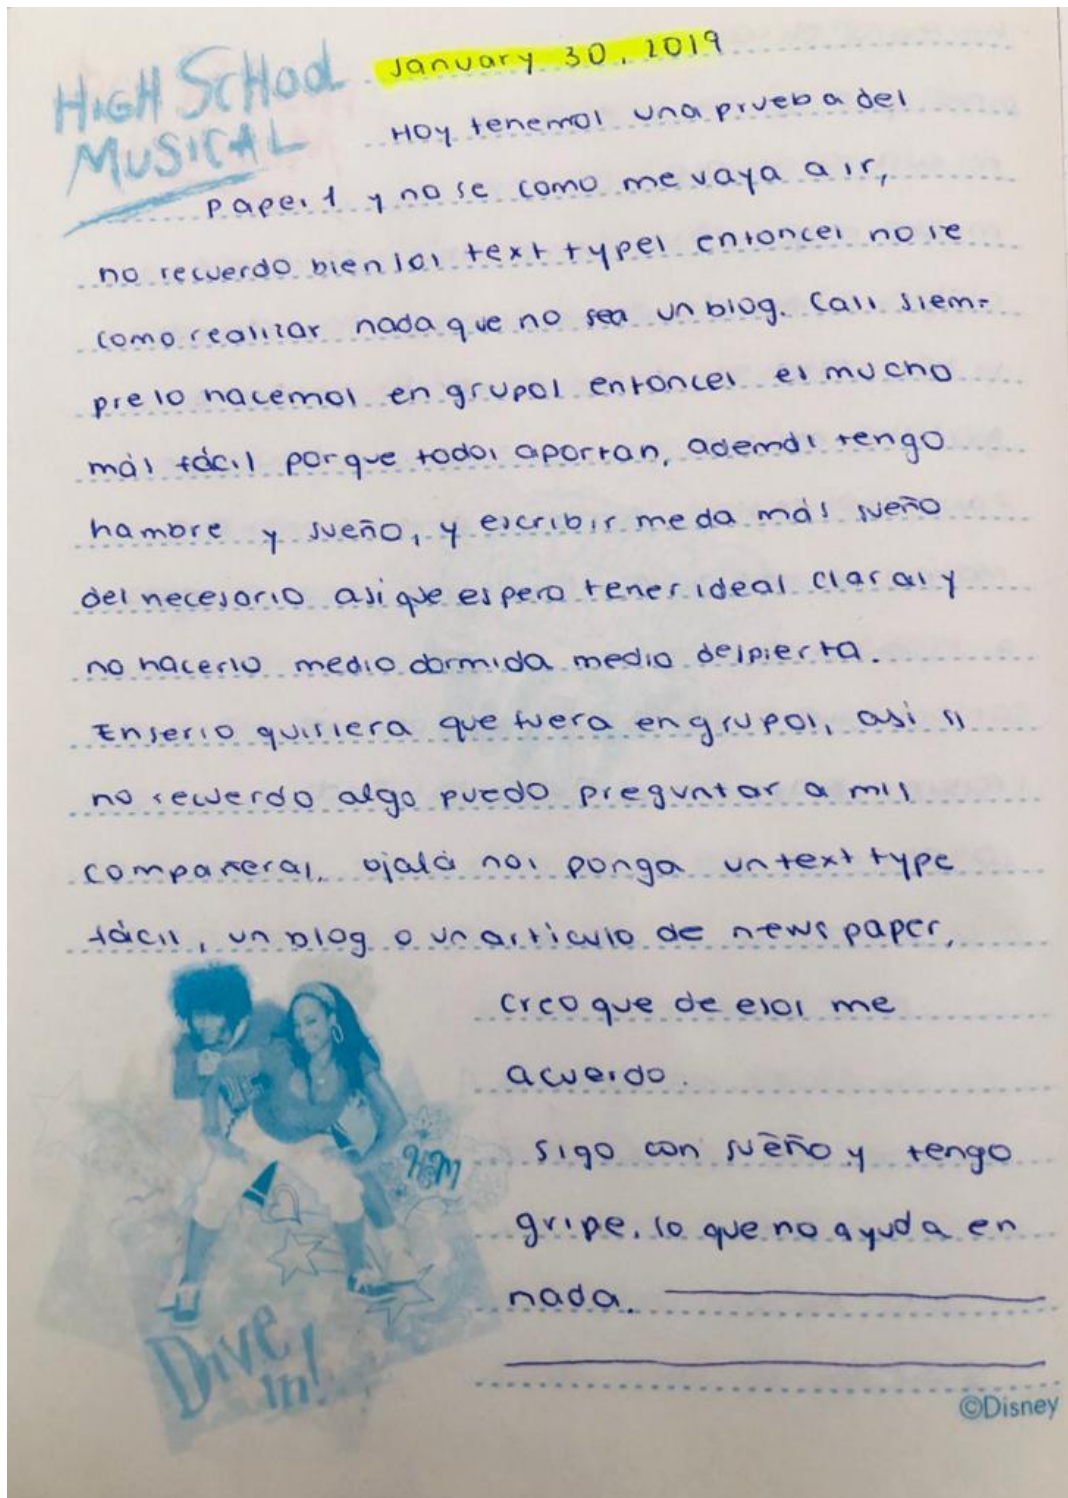 HIGH SCHOOL
MUSICAL
January 30, 2019
Hoy tenemos una prueba del
paper 1 y no se como me vaya a ir,
no recuerdo bien los text types entonces no se
como realizar nada que no sea un blog. Casi siem-
pre lo hacemos en grupos entonces es mucho
más fácil porque todos aportan, además tengo
hambre y sueño, y escribir me da más sueño
del necesario asi que espero tener ideas claras y
no hacerlo medio dormida medio despierta.
Enserio quisiera que fuera en grupos, asi si
no recuerdo algo puedo preguntar a mis
compañeras, ojalá nos ponga un text type
fácil, un blog o un articulo de newspaper,
creo que de esos me
acuerdo.
Sigo con sueño y tengo
gripe, lo que no ayuda en
nada.
HSM
Dive
in!
©Disney